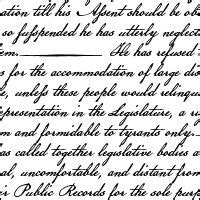 ation till his Assent should be obt
so suspended he has utterly neglect
em. He has refused t
s for the accommodation of large dis
e, unless these people would relinqu
epresentation in the Legislature, a r
m and formidable to tyrants only.
as called together legislative bodies a
al, uncomfortable, and distant from
r Public Records for the sole purp